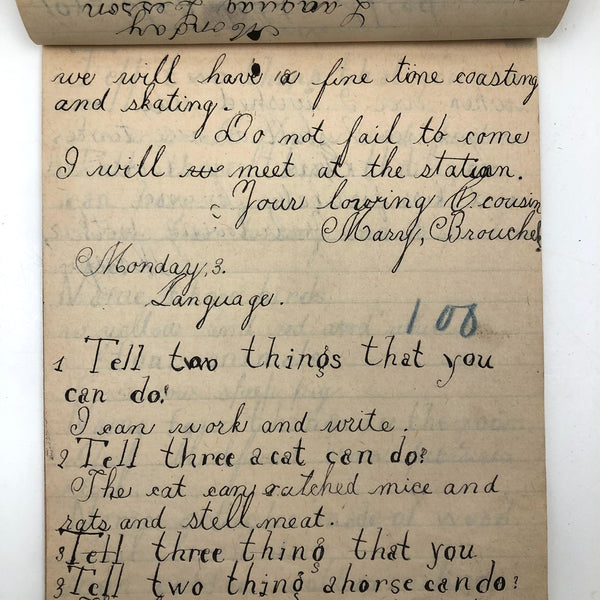 Monday
Language Lesson
we will have a fine time coasting
and skating.
Do not fail to come
I will meet at the station.
Your lowing cousin
Mary, Brouchel
Monday, 3.
Language.
100
1 Tell two things that you
can do?
I can work and write.
2 Tell three a cat can do?
The cat can catched mice and
rats and stell meat.
3 Tell three thing that you
3 Tell two thing a horse can do?